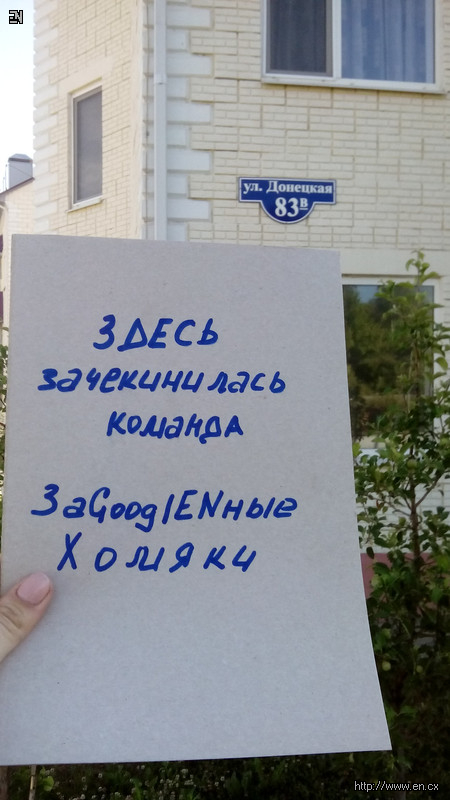 EN
ул. Донецкая
83в
ЗДЕСЬ
зачекинилась
команда
ЗаGooglENные
Хомяки
http://www.en.cx